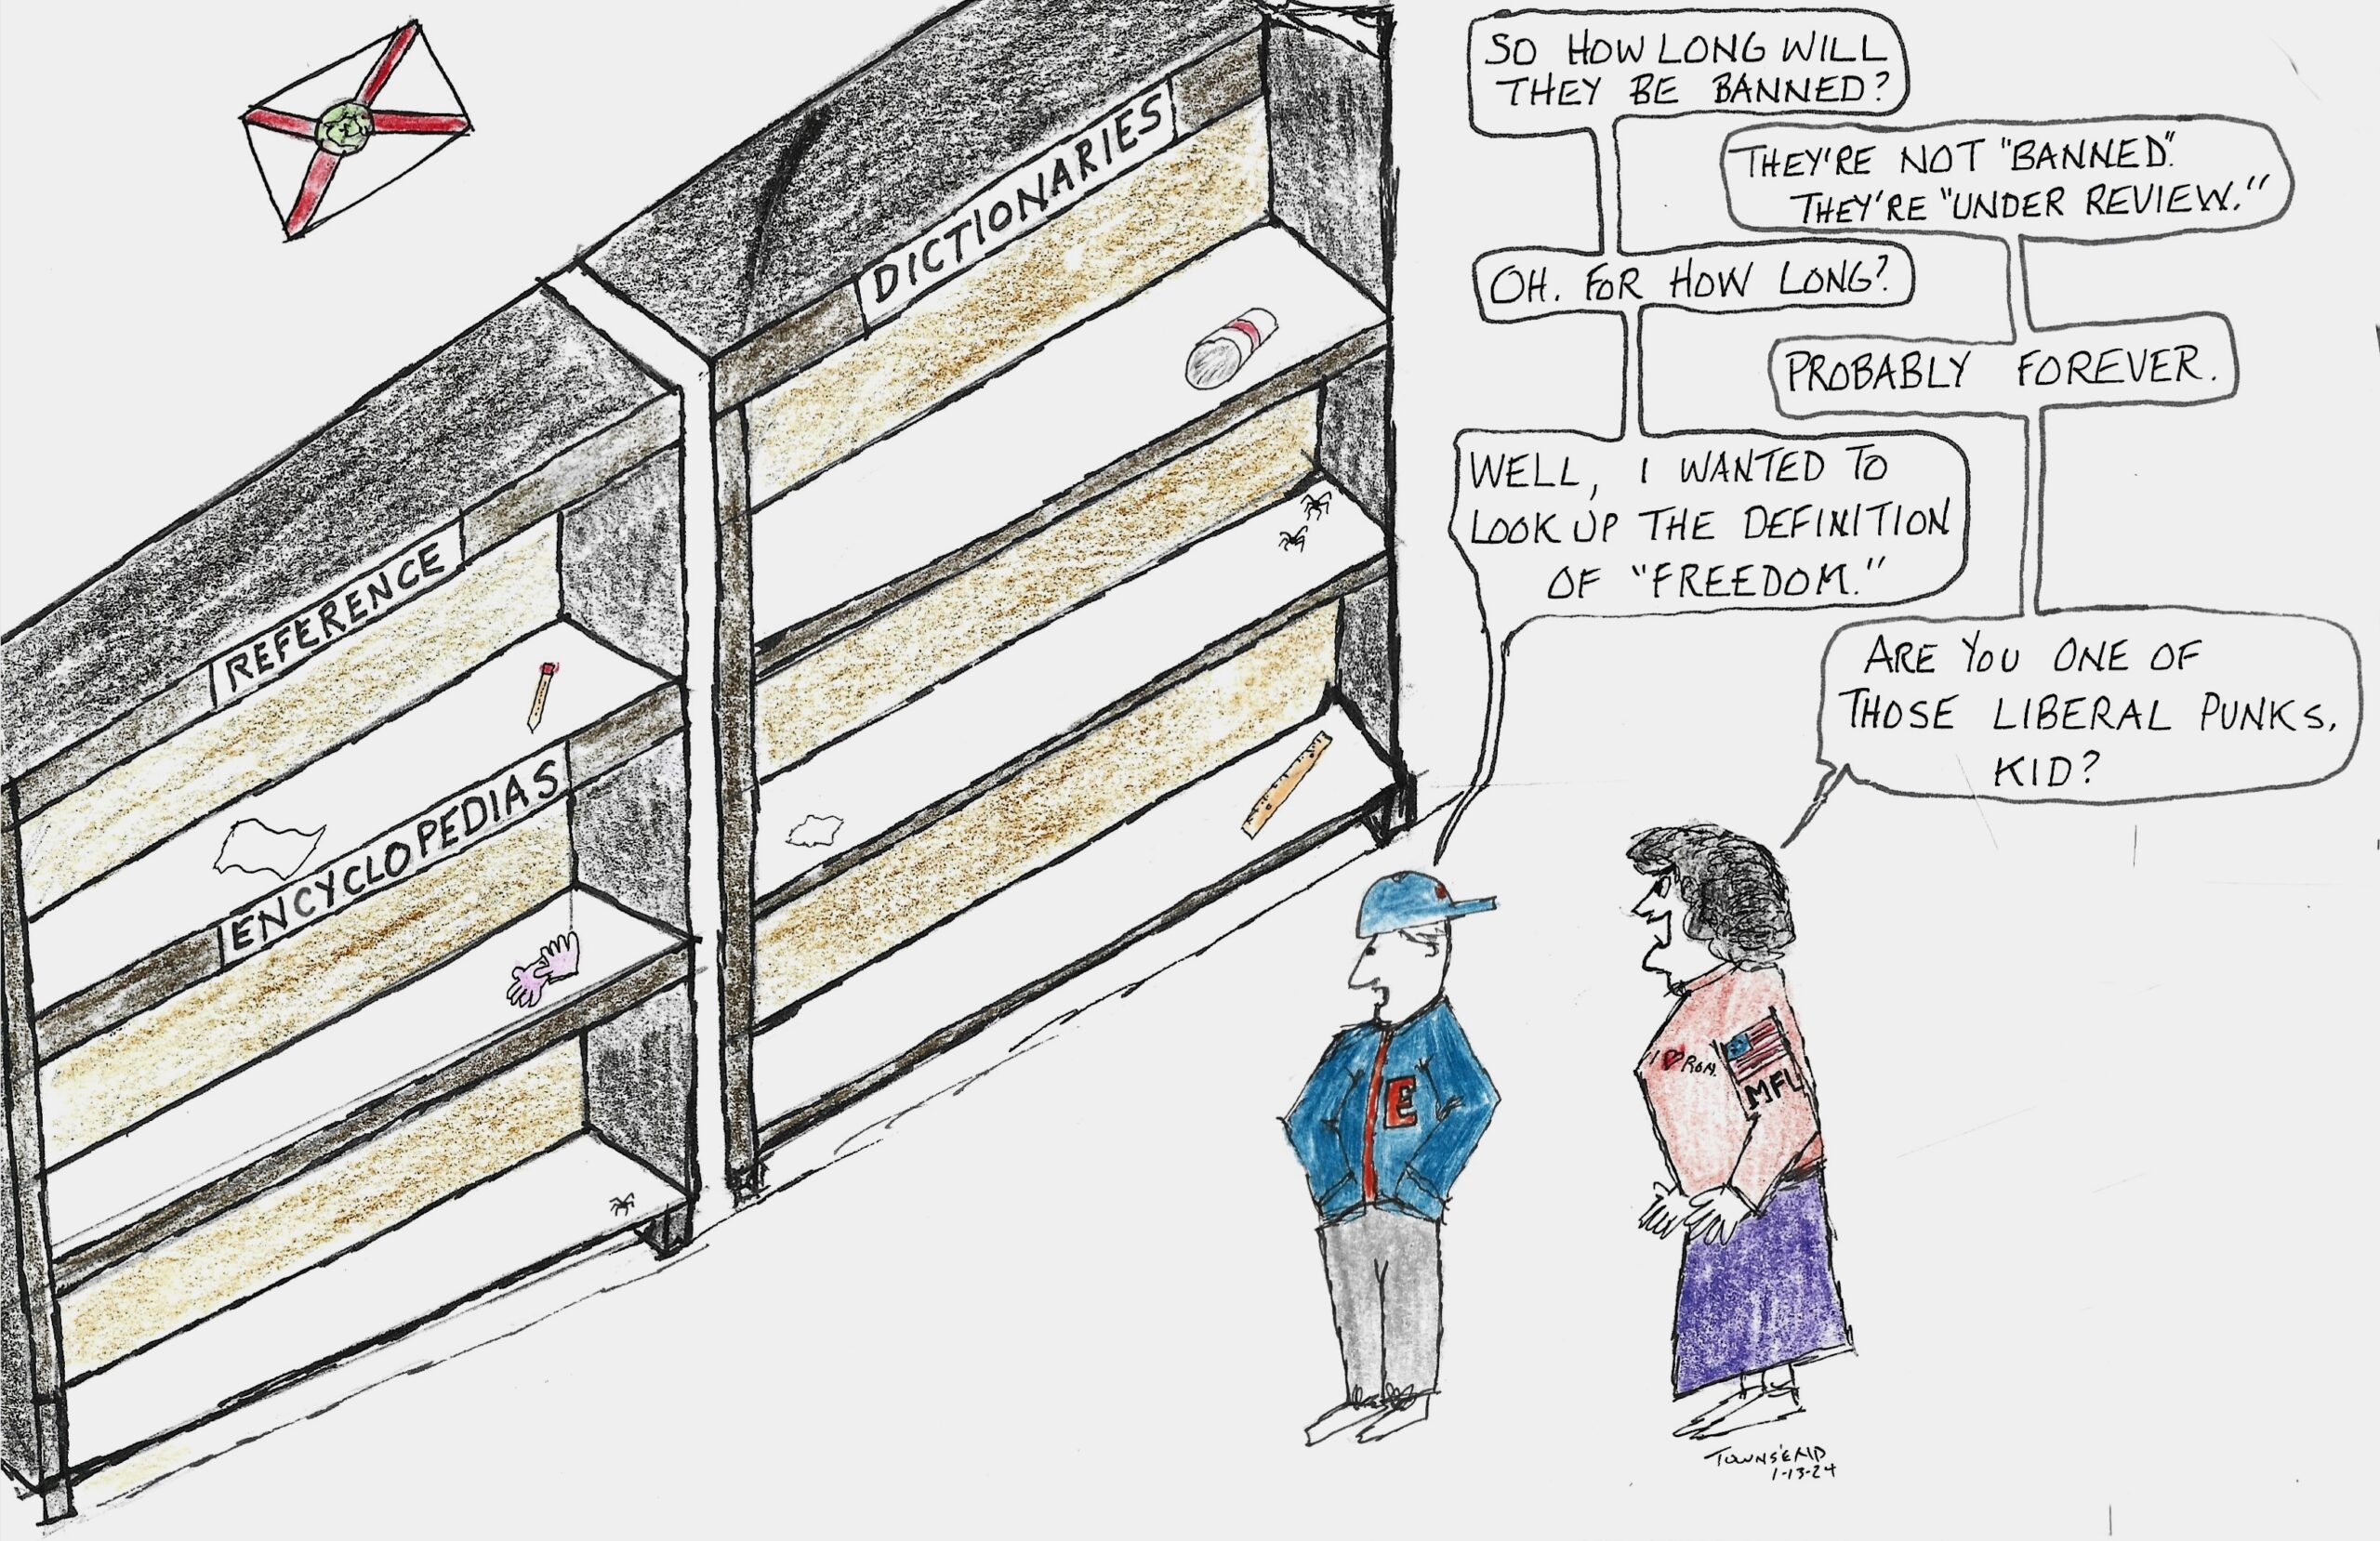 SO HOW LONG WILL
THEY BE BANNED?
THEY'RE NOT "BANNED".
THEY'RE "UNDER REVIEW."
OH. FOR HOW LONG?
PROBABLY FOREVER.
WELL, I WANTED TO
LOOK UP THE DEFINITION
OF "FREEDOM."
ARE YOU ONE OF
THOSE LIBERAL PUNKS,
KID?
DICTIONARIES
REFERENCE
ENCYCLOPEDIAS
E
I ♥ RON
MFL
TOWNSEND
1-13-24